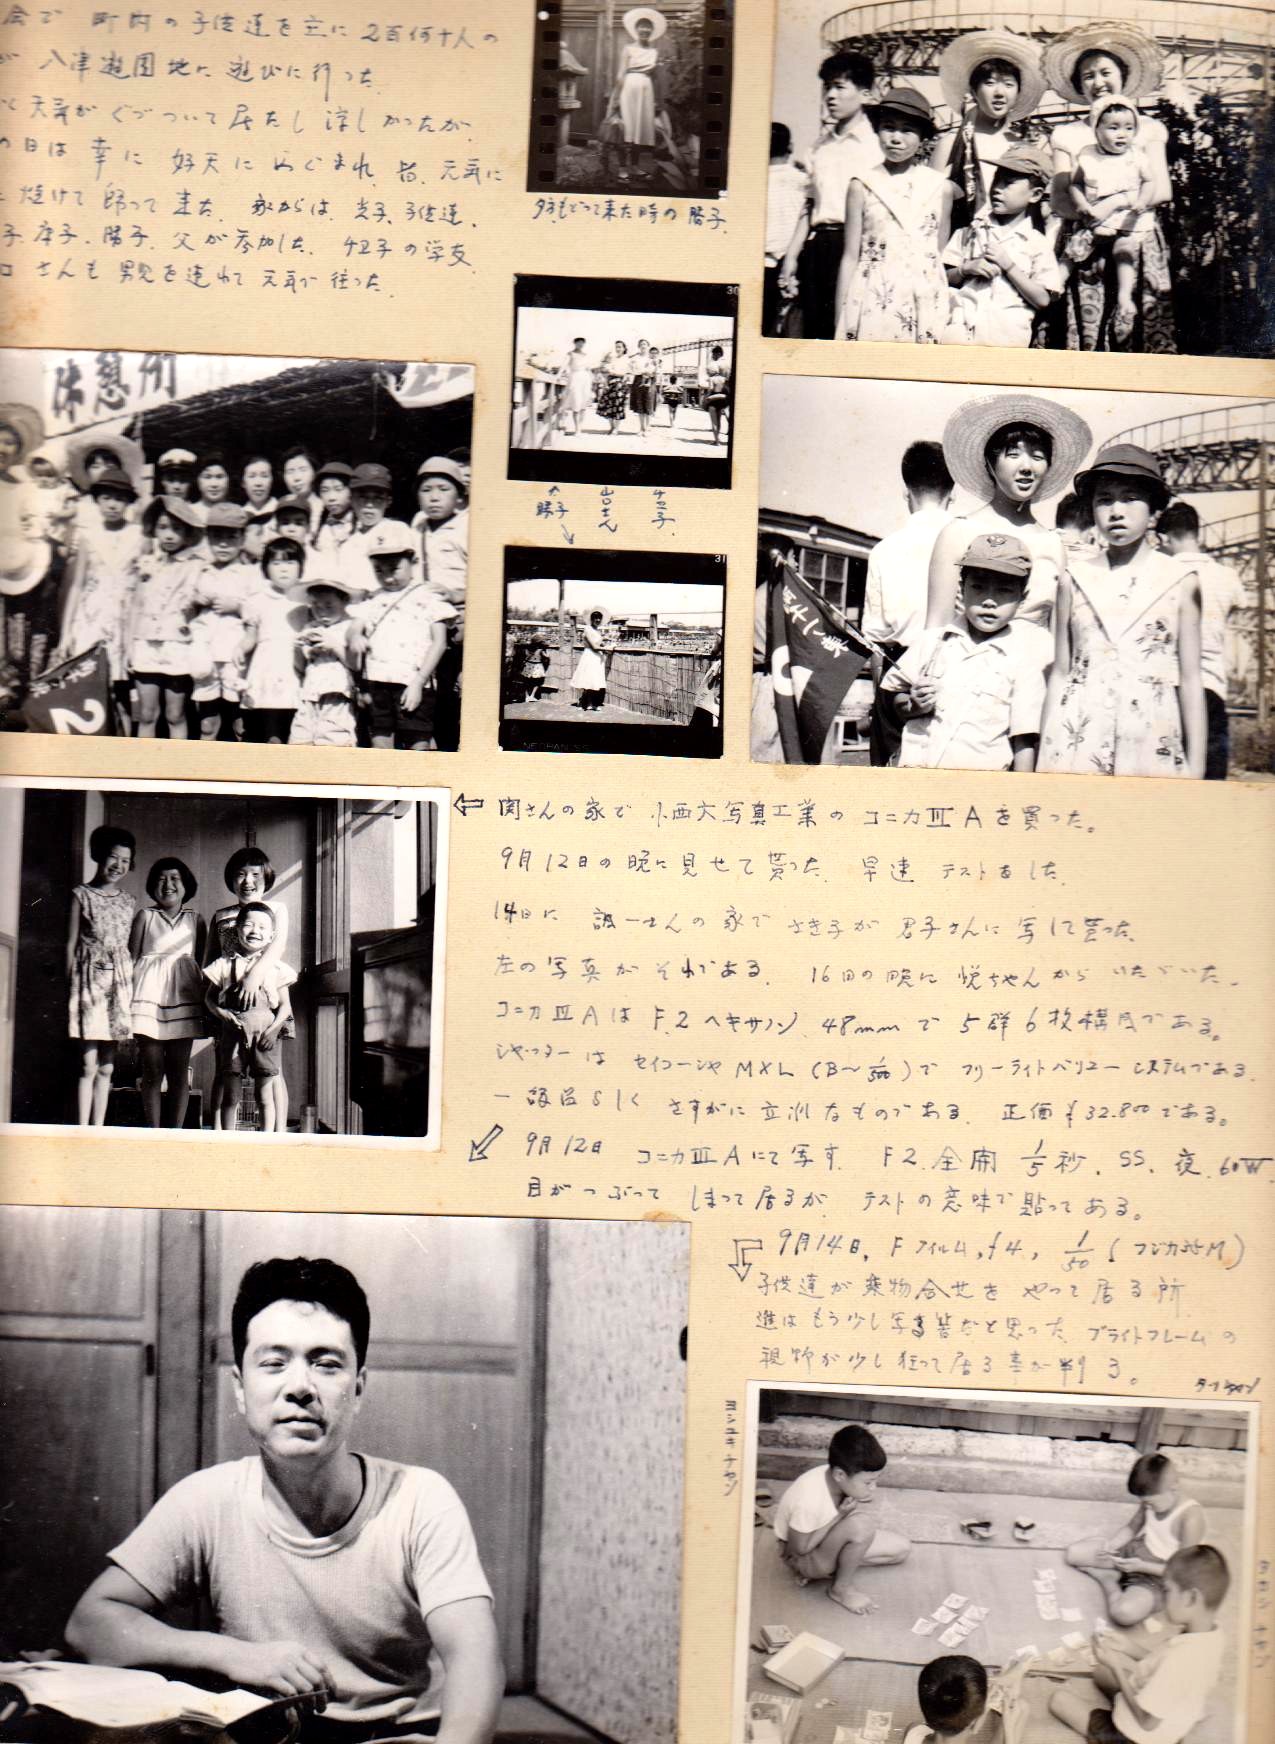 会で 町内の子供達を主に2百何十人の
が 谷津遊園地に遊びに行った.
く天気がぐづついて居たし涼しかったが
の日は幸に 好天にめぐまれ、皆、元気に
に焼けて帰って来た. 家からは、光子、子供達、
子、陽子、父が参加した. 子の学友
口さんも男児を連れて元気で往った.
もどって来た時の陽子.
休憩所
30
陽子
山口さん
31
2
⇦ 関さんの家で 小西六写真工業のコニカⅢAを買った。
9月12日の晩に見せて貰った. 早速テストをした.
14日に 誠一さんの家でさき子が君子さんに写して貰った.
左の写真がそれである. 16日の晩に悦ちゃんからいたゞいた.
コニカⅢAは F.2 ヘキサノン. 48mmで5群6枚構成である。
シャッターは セイコーシャMXL (B〜1/500)で フリーライトバリューシステムである.
一級品らしく さすがに立派なものである. 正価¥32.800である。
9月12日 コニカⅢAにて写す. F2.全開 1/5秒. SS. 夜. 60W.
目がつぶって しまって居るが テストの意味で貼ってある。
9月14日, Fフイルム, f4, 1/50 (フジカ35M)
子供達が乗物合せを やって居る所
進はもう少し写る筈だと思った. ブライトフレームの
視野が少し狂って居る事が判る。
ターチャン
ヨシユキチャン
タカシチャン